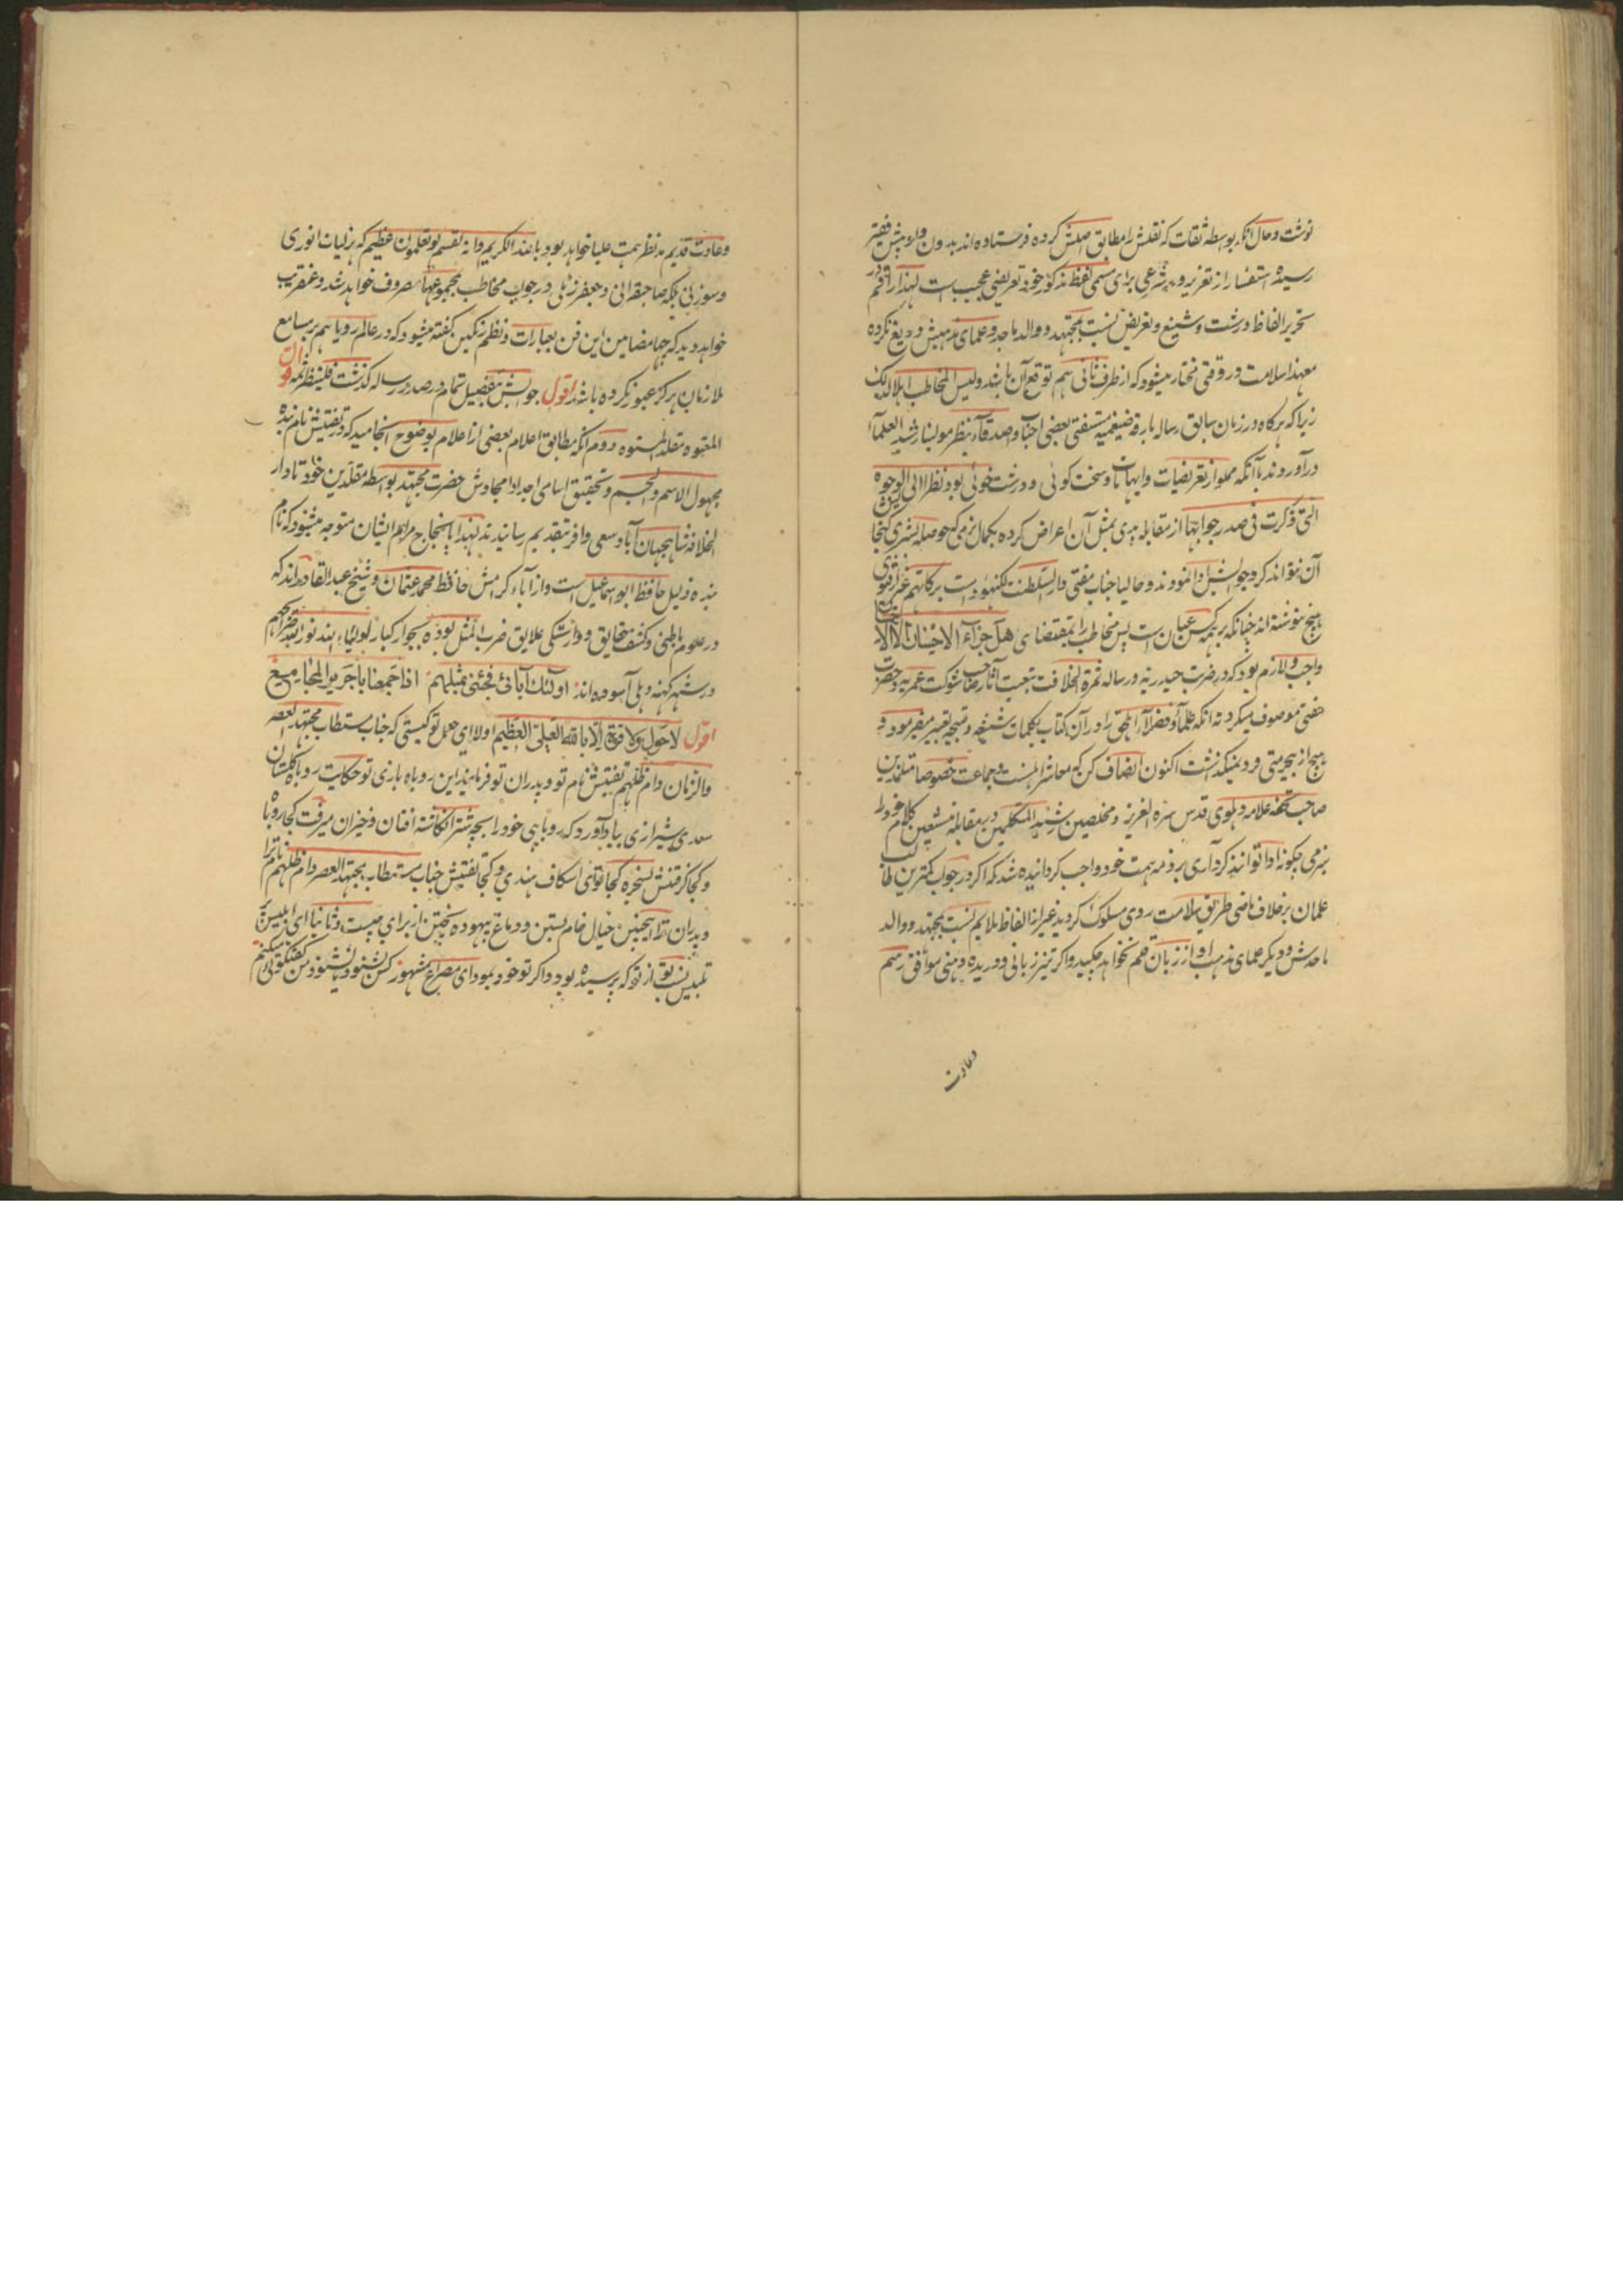 نوشت و حال آنکه بواسطه ثقات که نقلش را مطابق اصلش کرده فرستاده اند بدون واو پیش فقیر
رسیده استفسار از تعزیر و شرعی برای مسمی لفظ مذکور خود تعریضی عجیب است لهذا راقم
تحریر الفاظ درشت و شنیع و تعریض نسبت بمجتهد و والد ماجد و علمای مذهبش دریغ نکرده
معهذا سلامت در وقتی مختار میشود که از طرف ثانی هم توقع آن باشد و لیس المخاطب اهلا لذلک
زیرا که هرگاه در زمان سابق رساله بارقه ضیغمیه مستفتی بعضی احبا و اصدقاء بنظر مولینا رشید العلماء
درآوردند باآنکه مملو از تعریضات و ایهامات و سخت کوئی و درشت خوئی بود نظرا الی الوجوه
التی ذکرت فی صدر جوابها از مقابله بمثل آن اعراض کرده بکمال نرمی که حوصله بشری گنجا
آن نتواند کرد جوابش ادا نمودند و حالیا جناب مفتی دارالسلطنت لکهنو دامت برکاتهم غیر از فتوی
هیچ ننوشته اند چنانکه بر همه کس عیان است پس مخاطب را بمقتضای هل جزاء الاحسان الا الاحسان
واجب و لازم بود که در ضربت حیدریه و رساله ثمرة الخلافت بتبعیت آثار صاحب شوکت عمریه و حضرت
مفتی موصوف میکرد نه آنکه علما و فضلا را در آن کتاب بکلمات شنیعه و قبیحه تعبیر میفرمود و
هیچ از بیحرمتی فرو نمیگذاشت اکنون انصاف کن که معاشر اهلسنت و جماعت خصوصا مقلدین
صاحب تحفه علامه دهلوی قدس سره العزیز و مخلصین رشید المتکلمین در مقابله متشیعین کلام خود را
بنرمی چگونه ادا توانند کرد آری بر ذمه همت خود واجب گردانیده شد که اگر در جواب کمترین طالب
علمان برخلاف ماضی طریق سلامت روی مسلوک گردید غیر از الفاظ ملایم نسبت بمجتهد و والد
ماجدش و دیگر علمای مذهب او از زبان قلم نخواهد چکید و اگر تیز زبانی و دریده دهنی موافق رسم
وعادت
وعادت قدیم مد نظر همت علیا خواهد بود باعد الکریم وانه لقسم لو تعلمون عظیم که هزلیات انوری
و سوزنی بلکه صاحبقرانی و جعفر زٹلی در جواب مخاطب بمجموعها مصروف خواهد شد و عنقریب
خواهد دید که چها مضامین این فن بعبارات و نظم رنگین گفته میشود که در عالم رویا هم بر مسامع
ملازمان هرگز عبور نکرده باشد اقول جوابش بتفصیل تمام در صدر رساله گذشت فلینظر ثمه قوله
المعتوه مقلد دوم آنکه مطابق اعلام بعضی از اعلام بوضوح انجامید که در تفتیش نام بنده
مجهول الاسم والجسم و تحقیق اسامی اجداد امجادش حضرت مجتهد بواسطه مقلدین خود تا دار
الخلافه شاهجهان آباد سعی وافر بتقدیم رسانیدند لهذا بانجاح مرام ایشان متوجه میشود که نام
بنده ذلیل حافظ ابو اسماعیل است و از آباء کرامش حافظ محمد عثمان و شیخ عبد القادر اند که
در علوم باطنی و کشف حقایق و وارستگی علایق ضرب المثل بوده بجوار کبار اولیاء الله نور الله ضرائحهم
در شهر کهنه دهلی آسوده اند اولئک آبائی فجئنی بمثلهم اذا جمعتنا یا جریر المجامع
اقول لا حول ولا قوة الا بالله العلی العظیم اولا ای جعل تو کیستی که جناب مستطاب مجتهد العصر
والزمان دام ظلهم تفتیش نام تو و پدران تو فرمایند این روباه بازی تو حکایت روباه گلستان
سعدی شیرازی بیاد آورد که روباهی خود را بچه شتر انگاشته افتان و خیزان میرفت کجا روباه
و کجا گرفتنش بسخره کجا تو ای اسکاف هندی و کجا تفتیش جناب مستطاب مجتهد العصر دام ظلهم نام ترا
و پدران ترا اینچنین خیال خام بستن و دماغ بیهوده پختن از برای چیست و ثانیا ای ابلیس
تلبیس نسب تو از تو که پرسیده بود و اگر تو خود نمودای مصراع مشهور کس بشنود یا نشنود من گفتگوئی میکنم